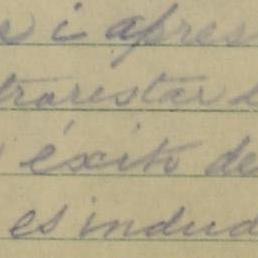 i apres
trarestar
éxito de
es indud